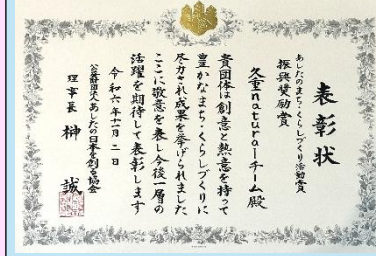 表彰状
あしたのまち・くらしづくり活動賞
振興奨励賞
久重naturalチーム殿
貴団体は創意と熱意を持って
豊かなまち・くらしづくりに
尽力され成果を挙げられました
ここに敬意を表し今後一層の
活躍を期待して表彰します
令和六年十一月二日
公益財団法人あしたの日本を創る協会
理事長 榊 誠